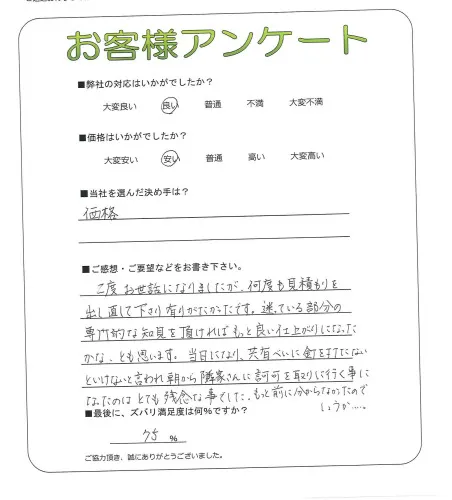 お客様アンケート
■弊社の対応はいかがでしたか?
大変良い 良い 普通 不満 大変不満
■価格はいかがでしたか?
大変安い 安い 普通 高い 大変高い
■当社を選んだ決め手は?
価格
■ご感想・ご要望などをお書き下さい。
2度お世話になりましたが、何度も見積もりを
出し直して下さり有りがたかたです。迷っている部分の
専門的な知見を頂ければもっと良い仕上がりになった
かな、とも思います。当日になり、共有べいに釘を打たない
といけないと言われ朝から隣家さんに許可を取りに行く事に
なったのはとても残念な事でした、もっと前に分からなかったので
しょうか…。
■最後に、ズバリ満足度は何%ですか?
75 %
ご協力頂き、誠にありがとうございました。